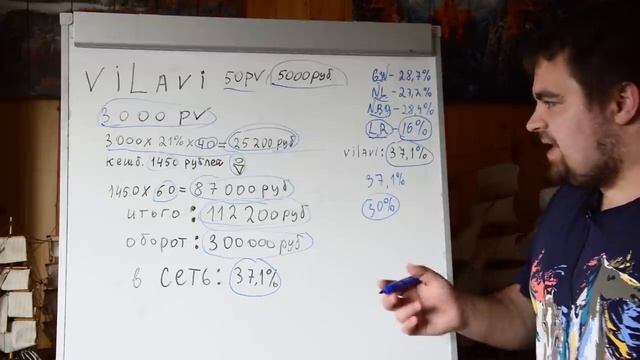 ViLAVi 50PV 5000руб
3000 PV
3000 x 21% x 40 = 25200 руб
кешб. 1450 рублей
1450 x 60 = 87000 руб
итого: 112200 руб
оборот: 300000 руб
в сеть: 37,1%
GW - 28,7%
NL - 27,2%
NBg - 28,4%
LR - 16%
vilavi: 37,1%
37,1%
30%